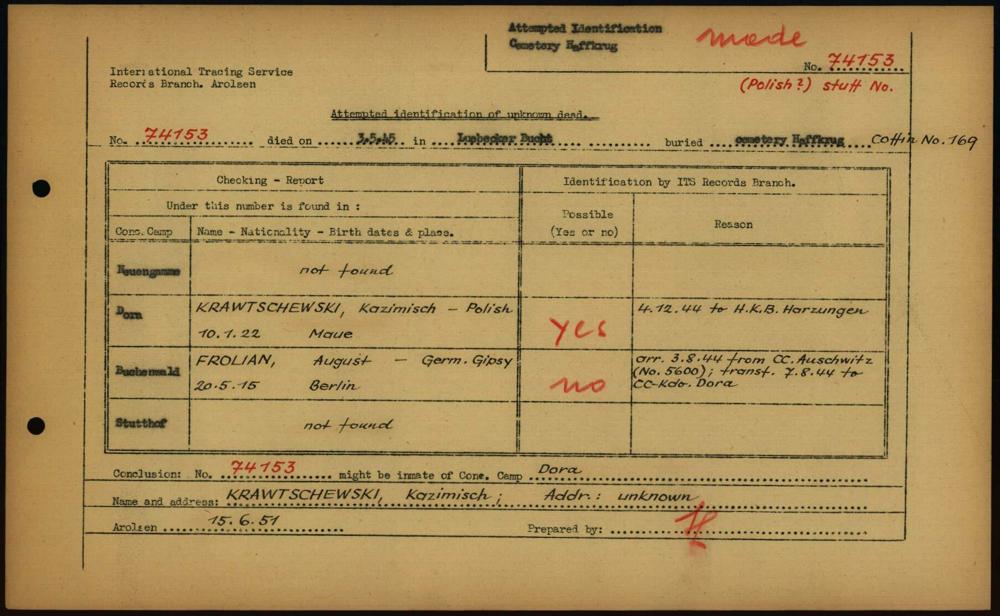 Attempted Identification
Cemetery Haffkrug
made
No. 74153
(Polish?) stuff No.
International Tracing Service
Records Branch. Arolsen
Attempted identification of unknown dead.
No. 74153 died on 3.5.45 in Luebecker Bucht buried cemetery Haffkrug Coffin No. 169
Checking - Report
Identification by ITS Records Branch.
Under this number is found in :
Possible
(Yes or no)
Reason
Conc. Camp
Name - Nationality - Birth dates & place.
Neuengamme
not found
Dora
KRAWTSCHEWSKI, Kazimisch - Polish
10.1.22 Maue
yes
4.12.44 to H.K.B. Harzungen
Buchenwald
FROLIAN, August - Germ. Gipsy
20.5.15 Berlin
no
arr. 3.8.44 from CC. Auschwitz
(No. 5600); transf. 7.8.44 to
CC-Kdo. Dora
Stutthof
not found
Conclusion: No. 74153 might be inmate of Conc. Camp Dora
Name and address: KRAWTSCHEWSKI, Kazimisch; Addr.: unknown
Arolsen 15.6.51 Prepared by: